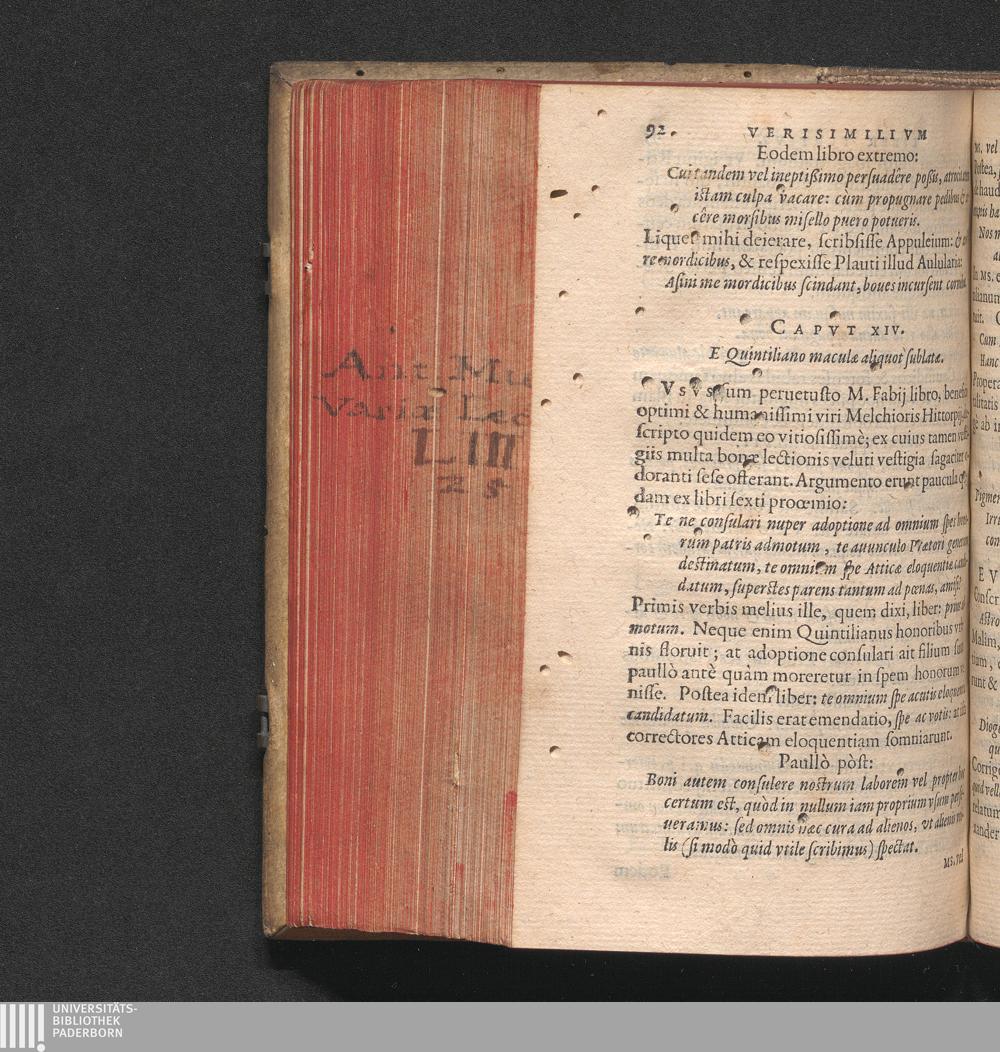 Ant. Mu
Variæ Lec
L III
25
92. VERISIMILIVM
Eodem libro extremo:
Cui tandem vel ineptißimo persuadêre poßis,
istam culpa vacare: cùm propugnare pedibus &
cêre morsibus misello puero potueris.
Liquet mihi deierare, scribsisse Appuleium: &
remordicibus, & respexisse Plauti illud Aulularia:
Asini me mordicibus scindant, boues incursent
CAPVT XIV.
E Quintiliano maculæ aliquot sublatæ.
VSVS sum peruetusto M. Fabij libro,
optimi & humanissimi viri Melchioris
scripto quidem eo vitiosissimè; ex cuius tamen
giis multa bonæ lectionis veluti vestigia sagaciter
doranti sese offerant. Argumento erunt paucula
dam ex libri sexti proœmio:
Te ne consulari nuper adoptione ad omnium spes
rum patris admotum, te auunculo Prætori
destinatum, te omnium spe Atticæ eloquentiæ
datum, superstes parens tantum ad pœnas,
Primis verbis melius ille, quem dixi, liber:
motum. Neque enim Quintilianus honoribus
nis floruit; at adoptione consulari ait filium
paullò antè quàm moreretur in spem honorum
nisse. Postea idem liber: te omnium spe acutis
candidatum. Facilis erat emendatio, spe ac votis:
correctores Atticam eloquentiam somniarunt.
Paullò pòst:
Boni autem consulere nostrum laborem vel propter hoc
certum est, quòd in nullum iam proprium vsum
ueramus: sed omnis hæc cura ad alienos, vt
lis (si modò quid vtile scribimus) spectat.
MS. vel
UNIVERSITÄTS-
BIBLIOTHEK
PADERBORN